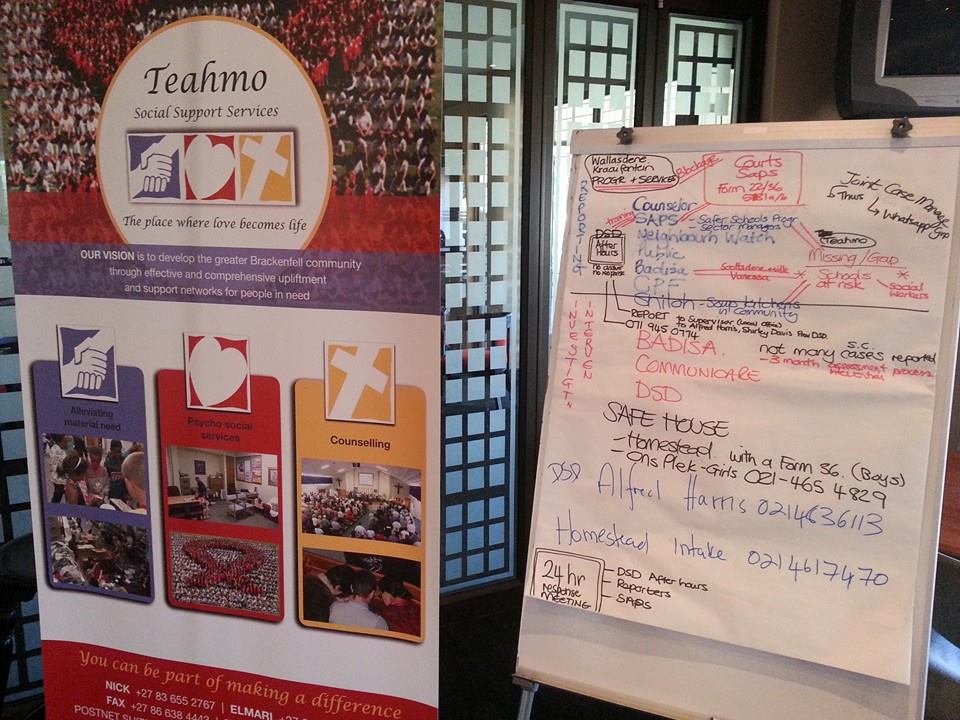 Teahmo
Social Support Services
The place where love becomes life
OUR VISION is to develop the greater Brackenfell community
through effective and comprehensive upliftment
and support networks for people in need
Alleviating
material need
Psycho social
services
Counselling
You can be part of making a difference
NICK +27 83 655 2767 | ELMARI
FAX +27 86 638 4443
POSTNET
Wallasdene
Kraaifontein
PROGR + SERVICES
Blockages
Courts
Saps
Form 22/36
Joint Case Manage
Thus
Whatsapp grp
REPORTING
Counselor
training
SAPS - Safer Schools Progr
- Sector managers
DSD
After
Hours
Neighbourn Watch
Public
Badisa
CPF
Shiloh - Soup kitchens
in Community
Scottsdene + ville
Vanessa
Teahmo
Missing/Gap
Schools
at risk
social
workers
INVESTIGT
INTERVEN
REPORT to Supervisor (Local office)
071 945 0774 to Alfred Harris, Shirley Davis DSD
BADISA
COMMUNICARE
DSD
s.c.
not many cases reported
- 3 month assessment process
SAFE HOUSE
- Homestead with a Form 36. (Boys)
- Ons Plek - Girls 021-465 4829
DSD Alfred Harris 0214636113
Homestead Intake 0214617470
24 hr
response
MEETING
- DSD After hours
- Reporters
- SAPS